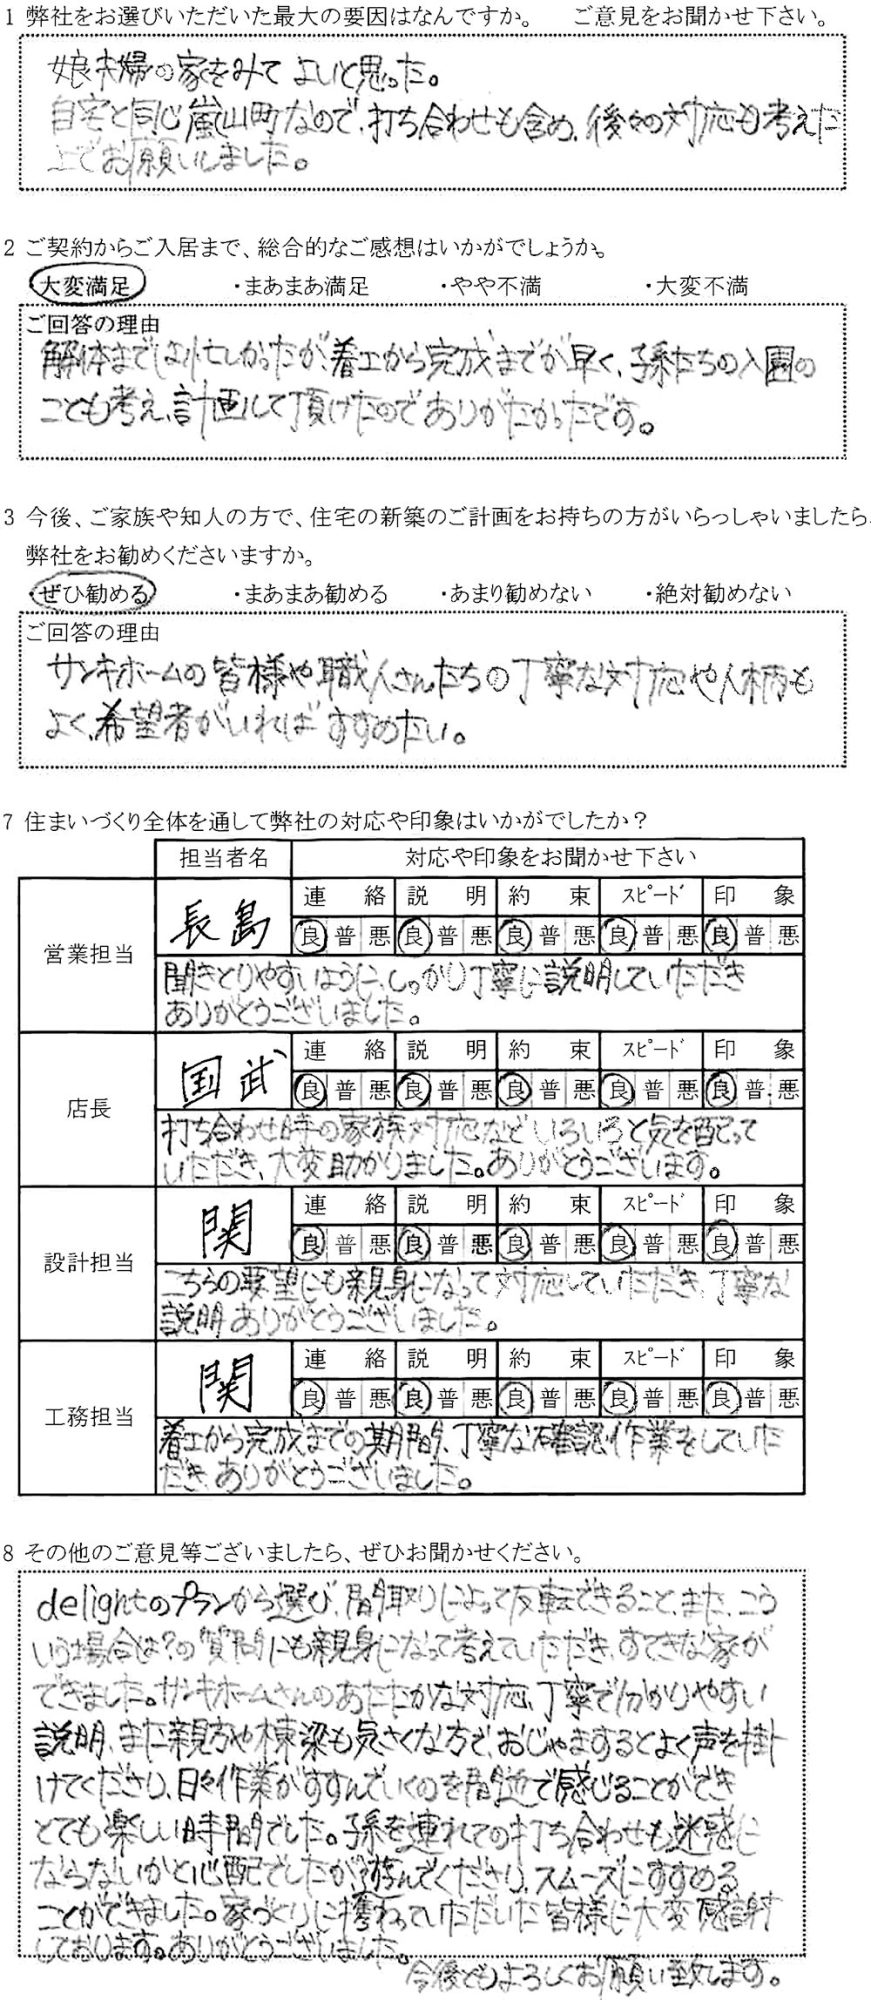 1 弊社をお選びいただいた最大の要因はなんですか。　ご意見をお聞かせ下さい。
娘夫婦の家をみてよいと思った。
自宅と同じ嵐山町なので、打ち合わせも含め、後々の対応も考えた
上でお願いしました。
2 ご契約からご入居まで、総合的なご感想はいかがでしょうか。
大変満足　・まあまあ満足　・やや不満　・大変不満
ご回答の理由
解体まではせわしかったが、着工から完成までが早く、孫たちの入園の
ことも考え、計画して頂けたのでありがたかったです。
3 今後、ご家族や知人の方で、住宅の新築のご計画をお持ちの方がいらっしゃいましたら、
弊社をお勧めくださいますか。
・ぜひ勧める　・まあまあ勧める　・あまり勧めない　・絶対勧めない
ご回答の理由
サンキホームの皆様や職人さんたちの丁寧な対応や人柄も
よく、希望者がいればすすめたい。
7 住まいづくり全体を通して弊社の対応や印象はいかがでしたか？
担当者名　対応や印象をお聞かせ下さい
営業担当　長島　連絡　説明　約束　スピード　印象
良 普 悪　良 普 悪　良 普 悪　良 普 悪　良 普 悪
聞きとりやすいように、しっかり丁寧に説明していただき
ありがとうございました。
店長　国武　連絡　説明　約束　スピード　印象
良 普 悪　良 普 悪　良 普 悪　良 普 悪　良 普 悪
打ち合わせ時の家族対応などいろいろと気を配って
いただき、大変助かりました。ありがとうございます。
設計担当　関　連絡　説明　約束　スピード　印象
良 普 悪　良 普 悪　良 普 悪　良 普 悪　良 普 悪
こちらの要望にも親身になって対応していただき、丁寧な
説明ありがとうございました。
工務担当　関　連絡　説明　約束　スピード　印象
良 普 悪　良 普 悪　良 普 悪　良 普 悪　良 普 悪
着工から完成までの期間、丁寧な確認作業をしていた
だき、ありがとうございました。
8 その他のご意見等ございましたら、ぜひお聞かせください。
delightのプランから選び、間取りによって反転できること、また、こう
いう場合は？の質問にも親身になって考えていただき、すてきな家が
できました。サンキホームさんのあたたかな対応、丁寧で分かりやすい
説明、また親方や棟梁も気さくな方で、おじゃまするとよく声を掛
けてくださり、日々作業がすすんでいくのを間近で感じることができ
とても楽しい時間でした。孫を連れての打ち合わせも迷惑に
ならないかと心配でしたが、遊んでくださり、スムーズにすすめる
ことができました。家づくりに携わっていただいた皆様に大変感謝
しております。ありがとうございました。
今後ともよろしくお願い致します。